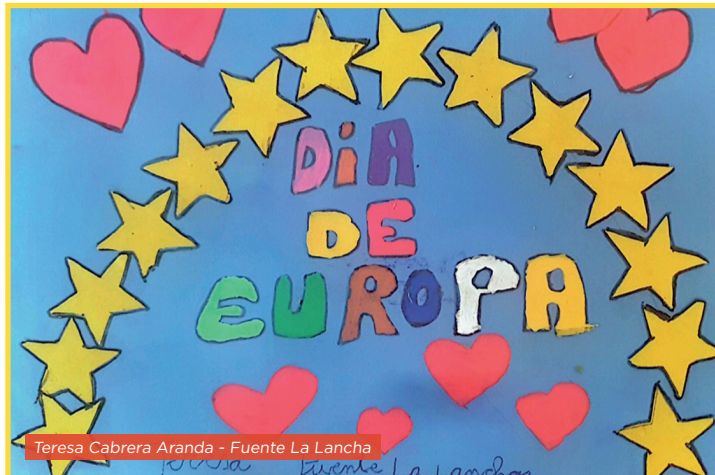 DiA
DE
EUROPA
Teresa Cabrera Aranda - Fuente La Lancha
Teresa Fuente La Lancha